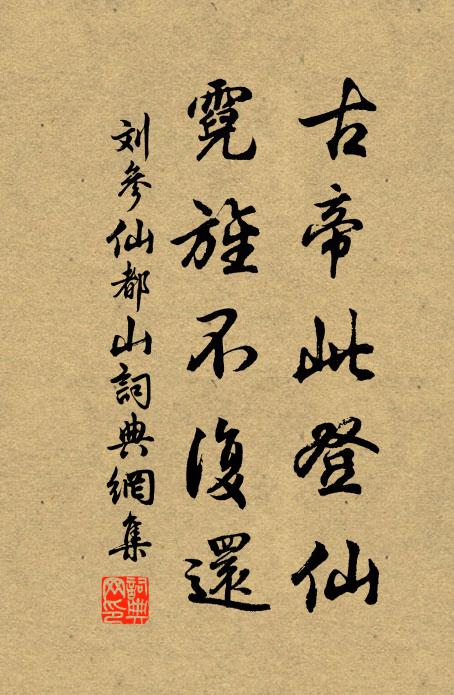 古帝此登仙
霓旌不復還
刘参仙都山詞典網集
詞典网印